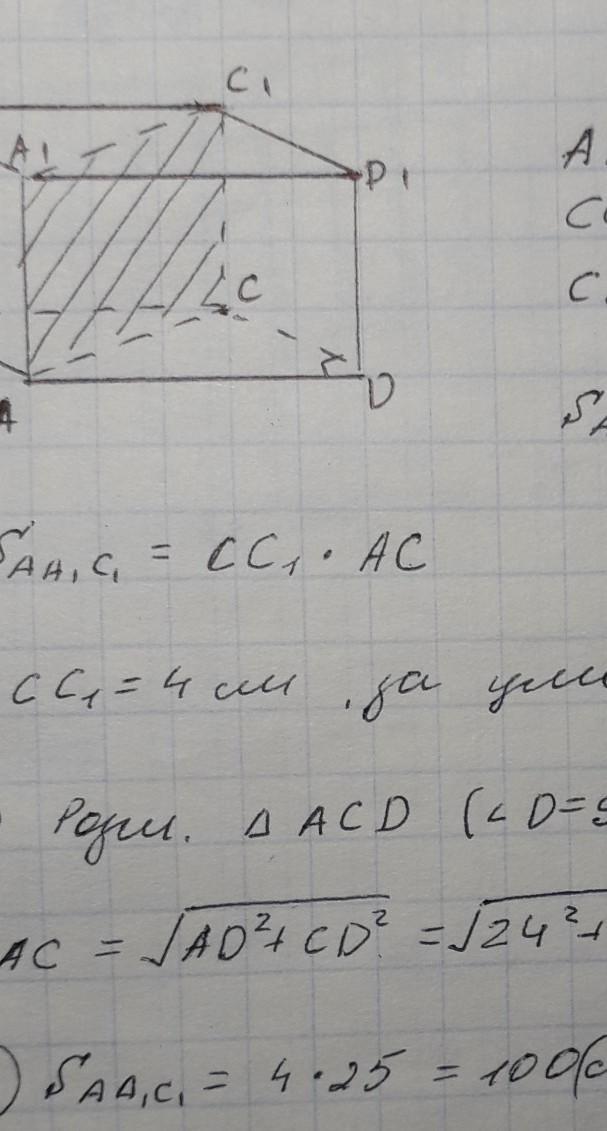 C₁
A₁
D₁
A
C
C
C
A
D
S
S_AA₁C₁ = CC₁ · AC
CC₁ = 4 см, за умо
Розгл. Δ ACD (∠D=9
AC = √AD²+CD² = √24²+
) S_AA₁C₁ = 4·25 = 100(с